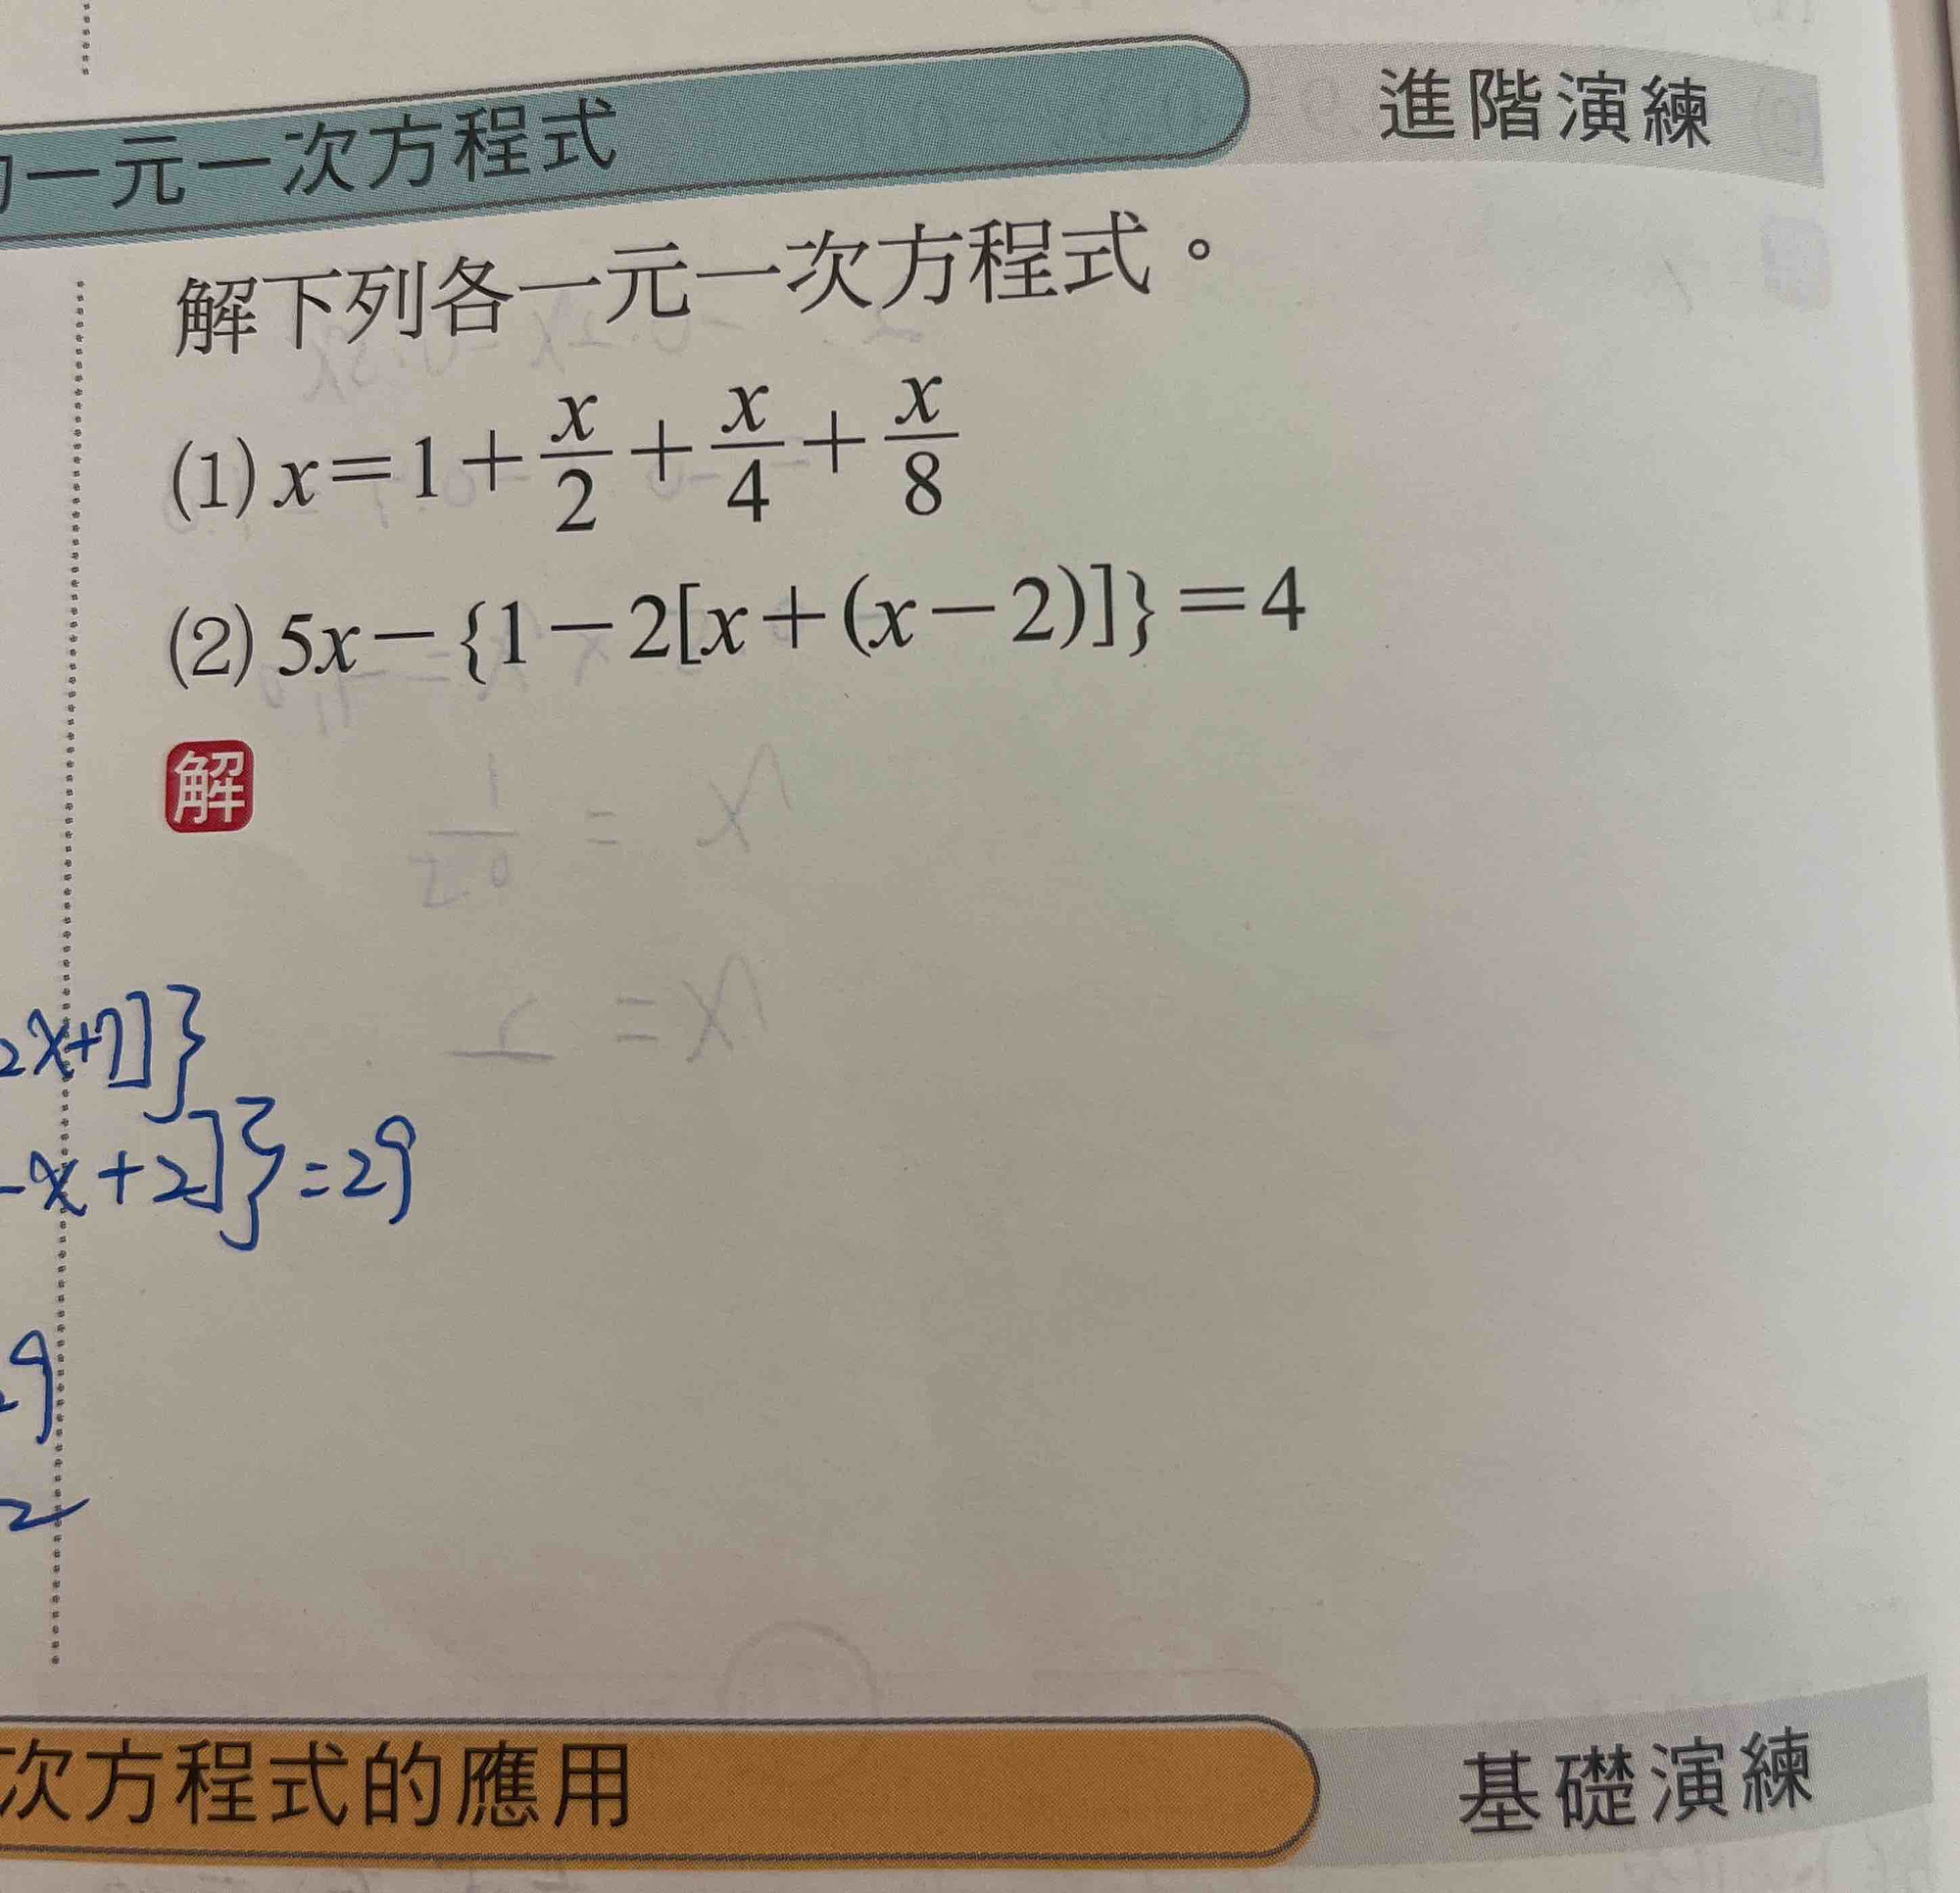 一元一次方程式 進階演練
解下列各一元一次方程式。
(1) x=1+x/2+x/4+x/8
(2) 5x-{1-2[x+(x-2)]}=4
解
2x+7]}
-x+2]}=29
9
2
次方程式的應用 基礎演練